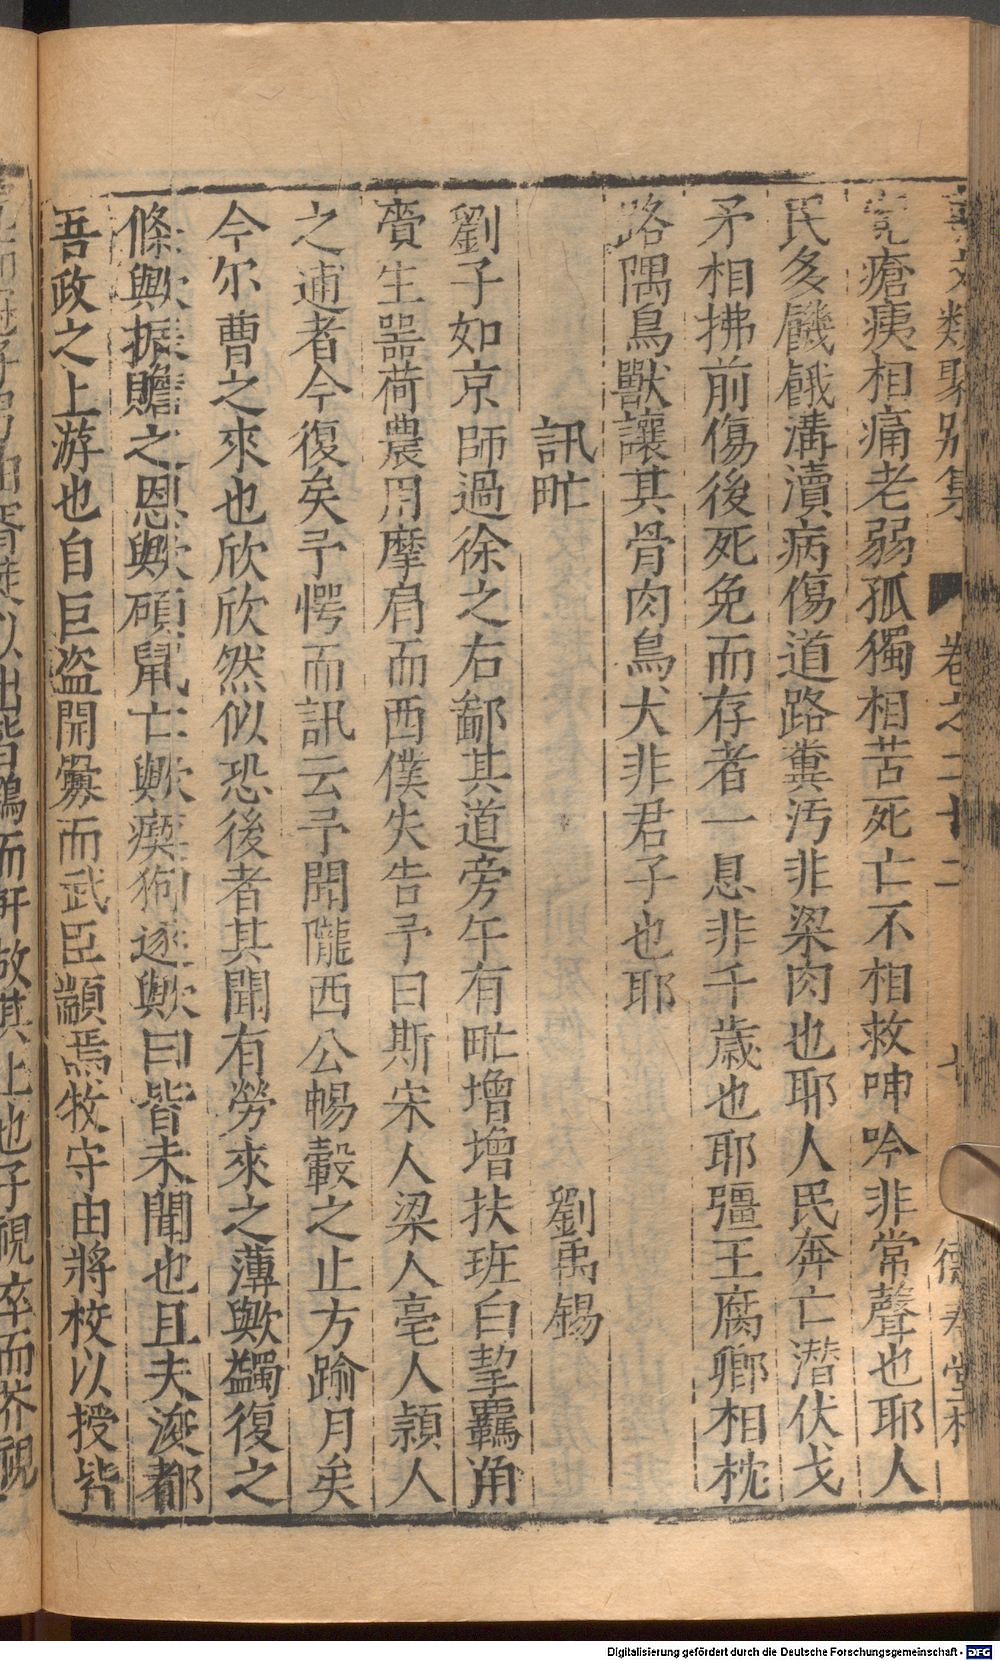 類聚別集 卷之二十二
瘡痍相痛老弱孤獨相苦死亡不相救呻吟非常聲也耶人
民多饑餓溝瀆病傷道路糞汚非梁肉也耶人民奔亡潜伏戈
矛相拂前傷後死免而存者一息非千歳也耶彊王腐卿相枕
路隅鳥獸讓其骨肉鳥犬非君子也耶
訊甿 劉禹錫
劉子如京師過徐之右鄙其道旁午有甿增增扶班白挈羈角
賫生噐荷農用摩肩而西僕失告予曰斯宋人梁人亳人潁人
之逋者今復矣予愕而訊云予聞隴西公暢轂之止方踰月矣
今尔曹之來也欣欣然似恐後者其聞有勞來之薄歟蠲復之
條歟振贍之恩歟碩鼠亡歟瘈狗逐歟曰皆未聞也且夫浚都
吾政之上游也自巨盗開釁而武臣顓焉牧守由將校以授皆
以出皆鷄而軒故其上也子視卒而芥視
Digitalisierung gefördert durch die Deutsche Forschungsgemeinschaft - DFG